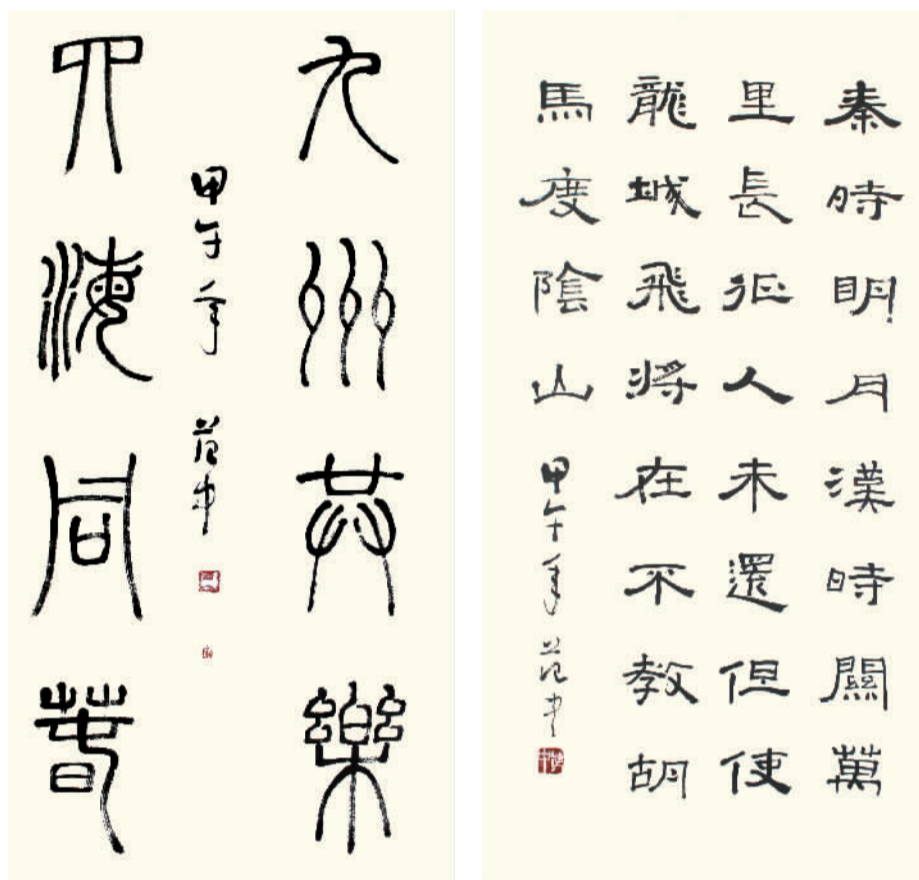 九州共樂
甲午年 范
四海同春
秦時明月漢時關萬
里長征人未還但使
龍城飛將在不教胡
馬度陰山
甲午年 范